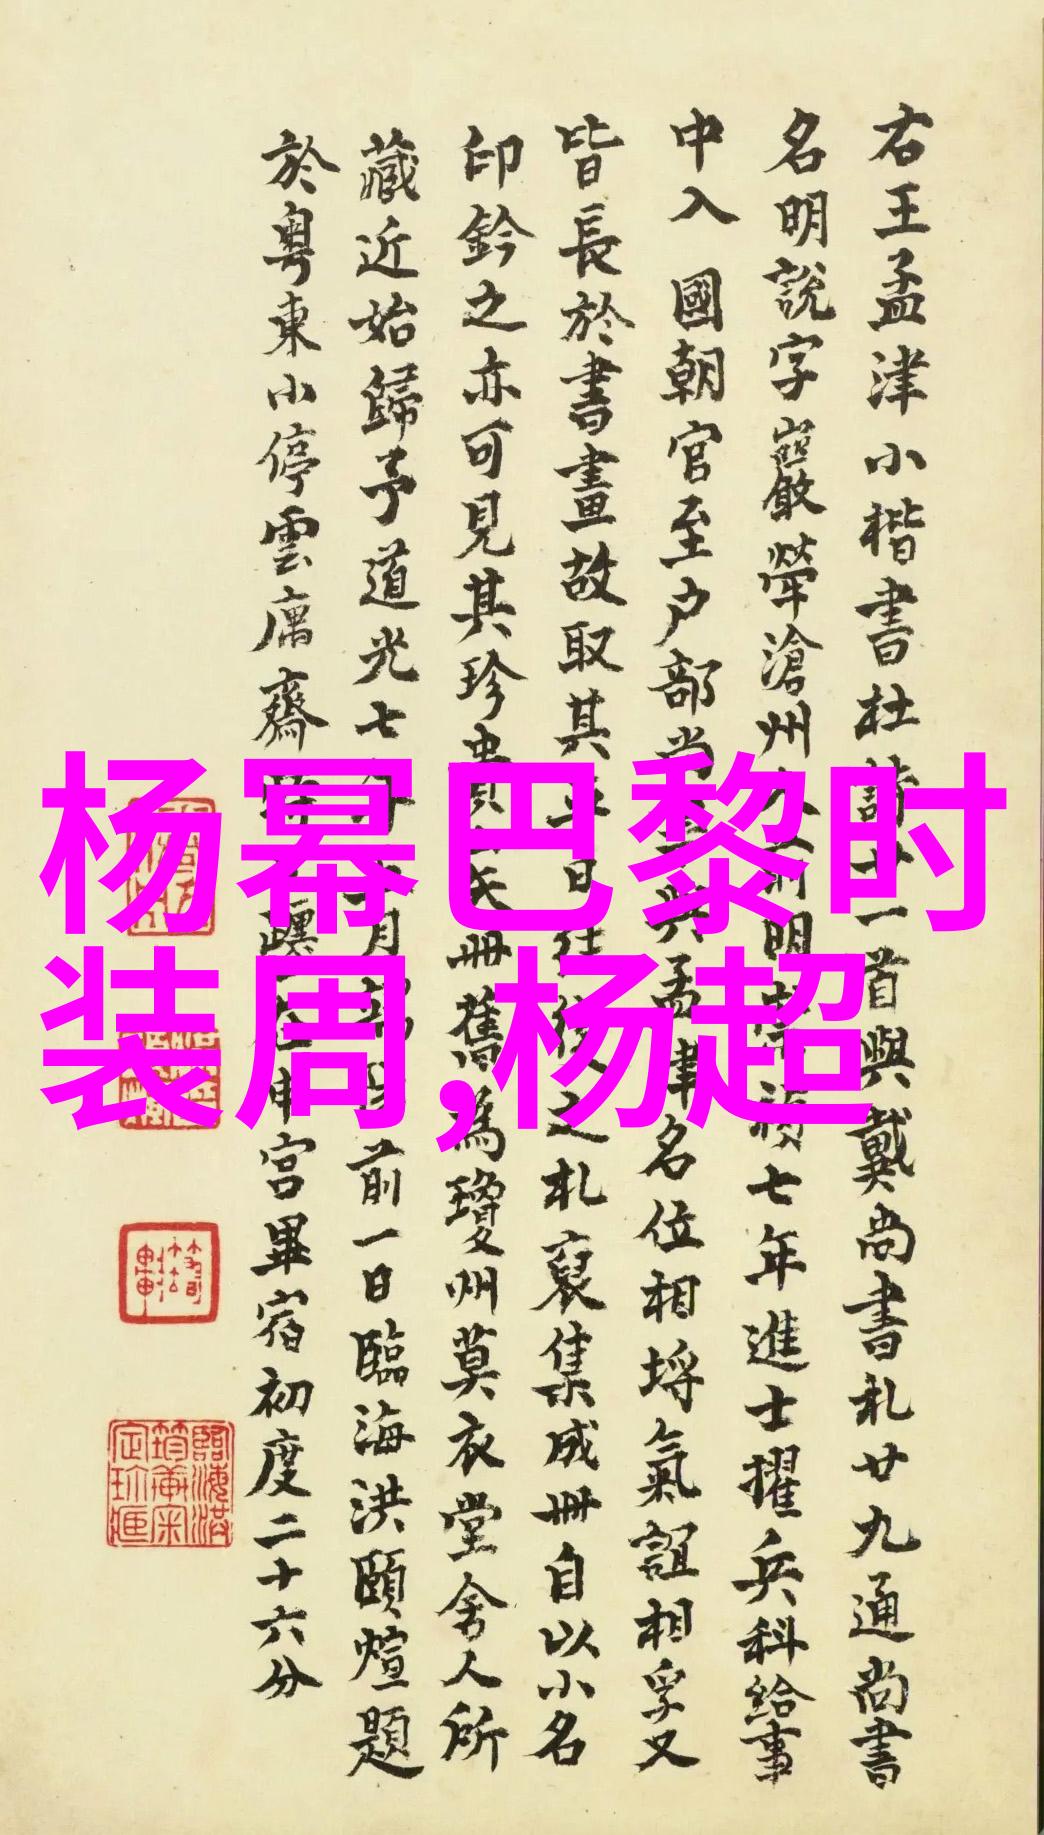 右王孟津小楷書杜詩廿一首與戴尚書札廿九通尚書
名明說字巖犖滄州人明崇禎七年進士擢兵科給事
中入國朝官至户部尚書與孟津名位相埒氣誼相孚又
皆長於書畫故取其平日往復之札裒集成冊自以小名
印鈐之亦可見其珍貴矣冊舊為瓊州莫衣堂舍人所
藏近始歸予道光七年十月前一日臨海洪頤煊題
於粵東小停雲寓齋躔在申宮畢宿初度二十六分
杨幂巴黎时
装周,杨超